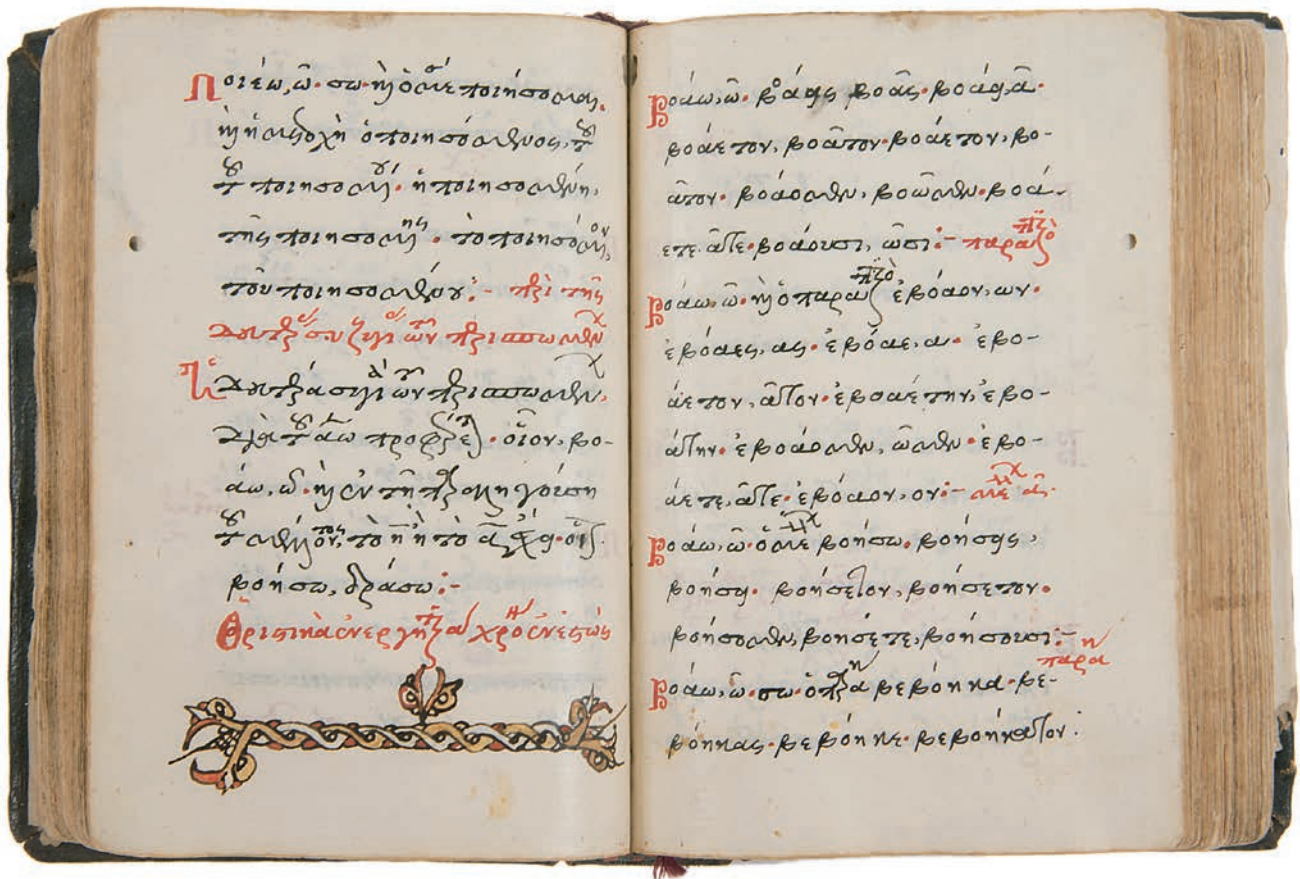 Ποιέω, ῶ· σω· καὶ ὁ μέσος ποιήσομαι·
καὶ ἡ μετοχὴ ὁ ποιησόμενος, τοῦ
τοῦ ποιησομένου· ἡ ποιησομένη,
τῆς ποιησομένης· τὸ ποιησόμενον,
τοῦ ποιησομένου:- περὶ τῆς
δευτέρας συζυγίας τῶν περισπωμένων
δευτέρα συζυγία τῶν περισπωμένων,
διὰ τοῦ άω προφέρεται· οἷον, βο-
άω, ῶ· καὶ ἐν τῇ
τοῦ μέλλοντος, τὸ η ἢ τὸ α ἔχει· οἷον
βοήσω, δράσω:-
Ὁριστικὰ ἐνεργητικὰ χρόνος ἐνεστὼς
Βοάω, ῶ· βοάεις βοᾶς· βοάει, ᾶ·
βοάετον, βοᾶτον· βοάετον, βο-
ᾶτον· βοάομεν, βοῶμεν· βοά-
ετε ᾶτε· βοάουσι, ῶσι:- παρατατικός
Βοάω, ῶ· καὶ ὁ παρατατικὸς ἐβόαον, ων·
ἐβόαες, ας· ἐβόαε, α· ἐβο-
άετον, ᾶτον· ἐβοαέτην, ἐβο-
άτην· ἐβοάομεν, ῶμεν· ἐβο-
άετε, ᾶτε· ἐβόαον, ον:- μέλλων α΄
Βοάω, ῶ· ὁ μέλλων βοήσω, βοήσεις,
βοήσει· βοήσετον, βοήσετον·
βοήσομεν, βοήσετε, βοήσουσι:-
παρακείμενος
Βοάω, ῶ· σω· ὁ παρακείμενος βεβόηκα· βε-
βόηκας· βεβόηκε· βεβοήκατον·